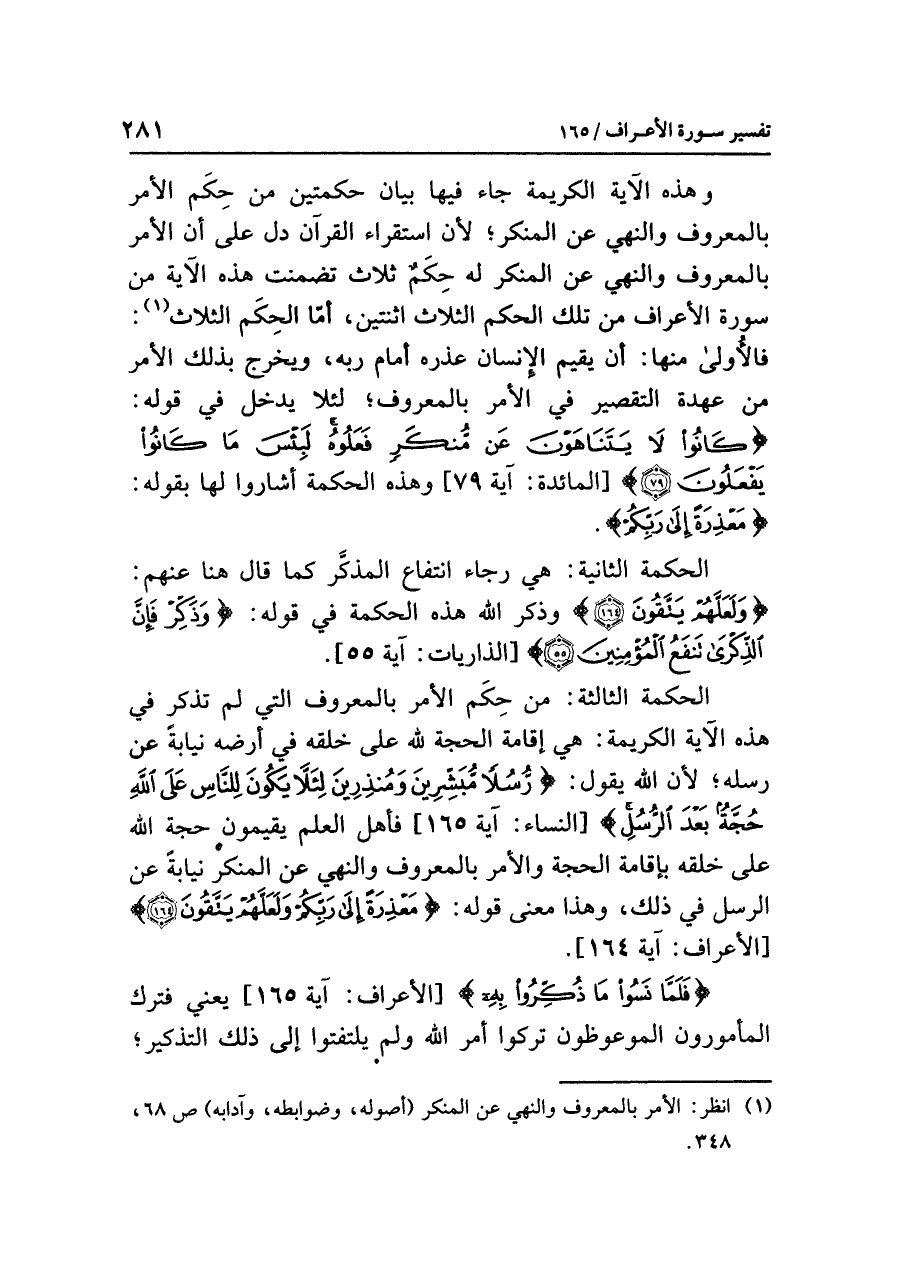 تفسير سـورة الأعـراف / ١٦٥ ٢٨١
وهذه الآية الكريمة جاء فيها بيان حكمتين من حِكَم الأمر
بالمعروف والنهي عن المنكر؛ لأن استقراء القرآن دل على أن الأمر
بالمعروف والنهي عن المنكر له حِكَمٌ ثلاث تضمنت هذه الآية من
سورة الأعراف من تلك الحكم الثلاث اثنتين، أمّا الحِكَم الثلاث(١):
فالأُولىٰ منها: أن يقيم الإنسان عذره أمام ربه، ويخرج بذلك الأمر
من عهدة التقصير في الأمر بالمعروف؛ لئلا يدخل في قوله:
﴿كَانُوا۟ لَا يَتَنَاهَوْنَ عَن مُّنكَرٍ فَعَلُوهُ ۚ لَبِئْسَ مَا كَانُوا۟
يَفْعَلُونَ ٧٩﴾ [المائدة: آية ٧٩] وهذه الحكمة أشاروا لها بقوله:
﴿مَعْذِرَةً إِلَىٰ رَبِّكُمْ﴾.
الحكمة الثانية: هي رجاء انتفاع المذكَّر كما قال هنا عنهم:
﴿وَلَعَلَّهُمْ يَتَّقُونَ ١٦٤﴾ وذكر الله هذه الحكمة في قوله: ﴿وَذَكِّرْ فَإِنَّ
ٱلذِّكْرَىٰ تَنفَعُ ٱلْمُؤْمِنِينَ ٥٥﴾ [الذاريات: آية ٥٥].
الحكمة الثالثة: من حِكَم الأمر بالمعروف التي لم تذكر في
هذه الآية الكريمة: هي إقامة الحجة لله على خلقه في أرضه نيابةً عن
رسله؛ لأن الله يقول: ﴿رُّسُلًا مُّبَشِّرِينَ وَمُنذِرِينَ لِئَلَّا يَكُونَ لِلنَّاسِ عَلَى ٱللَّهِ
حُجَّةٌۢ بَعْدَ ٱلرُّسُلِ ۚ﴾ [النساء: آية ١٦٥] فأهل العلم يقيمون حجة الله
على خلقه بإقامة الحجة والأمر بالمعروف والنهي عن المنكر نيابةً عن
الرسل في ذلك، وهذا معنى قوله: ﴿مَعْذِرَةً إِلَىٰ رَبِّكُمْ وَلَعَلَّهُمْ يَتَّقُونَ ١٦٤﴾
[الأعراف: آية ١٦٤].
﴿فَلَمَّا نَسُوا۟ مَا ذُكِّرُوا۟ بِهِۦ﴾ [الأعراف: آية ١٦٥] يعني فترك
المأمورون الموعوظون تركوا أمر الله ولم يلتفتوا إلى ذلك التذكير؛
(١) انظر: الأمر بالمعروف والنهي عن المنكر (أصوله، وضوابطه، وآدابه) ص ٦٨،
٣٤٨.